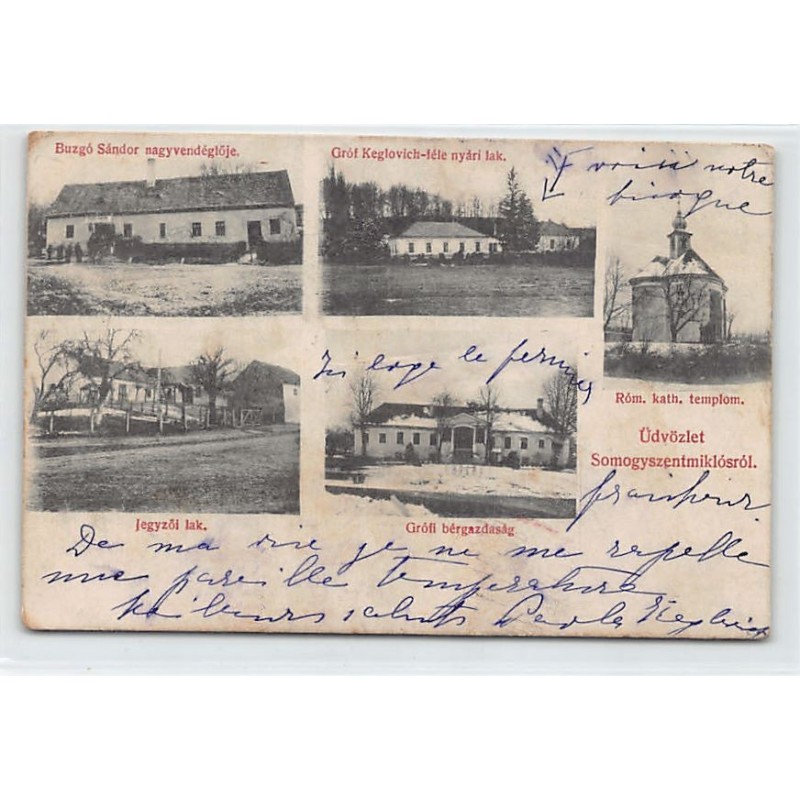 Buzgó Sándor nagyvendéglője.
Gróf Keglovich-féle nyári lak.
voici notre
bicoque
Ici loge le fermier
Róm. kath. templom.
Üdvözlet
Somogyszentmiklósról.
Jegyzői lak.
Grófi bérgazdaság
De ma vie je ne me rapelle
une pareille temperature
saluts Paola Keglevich